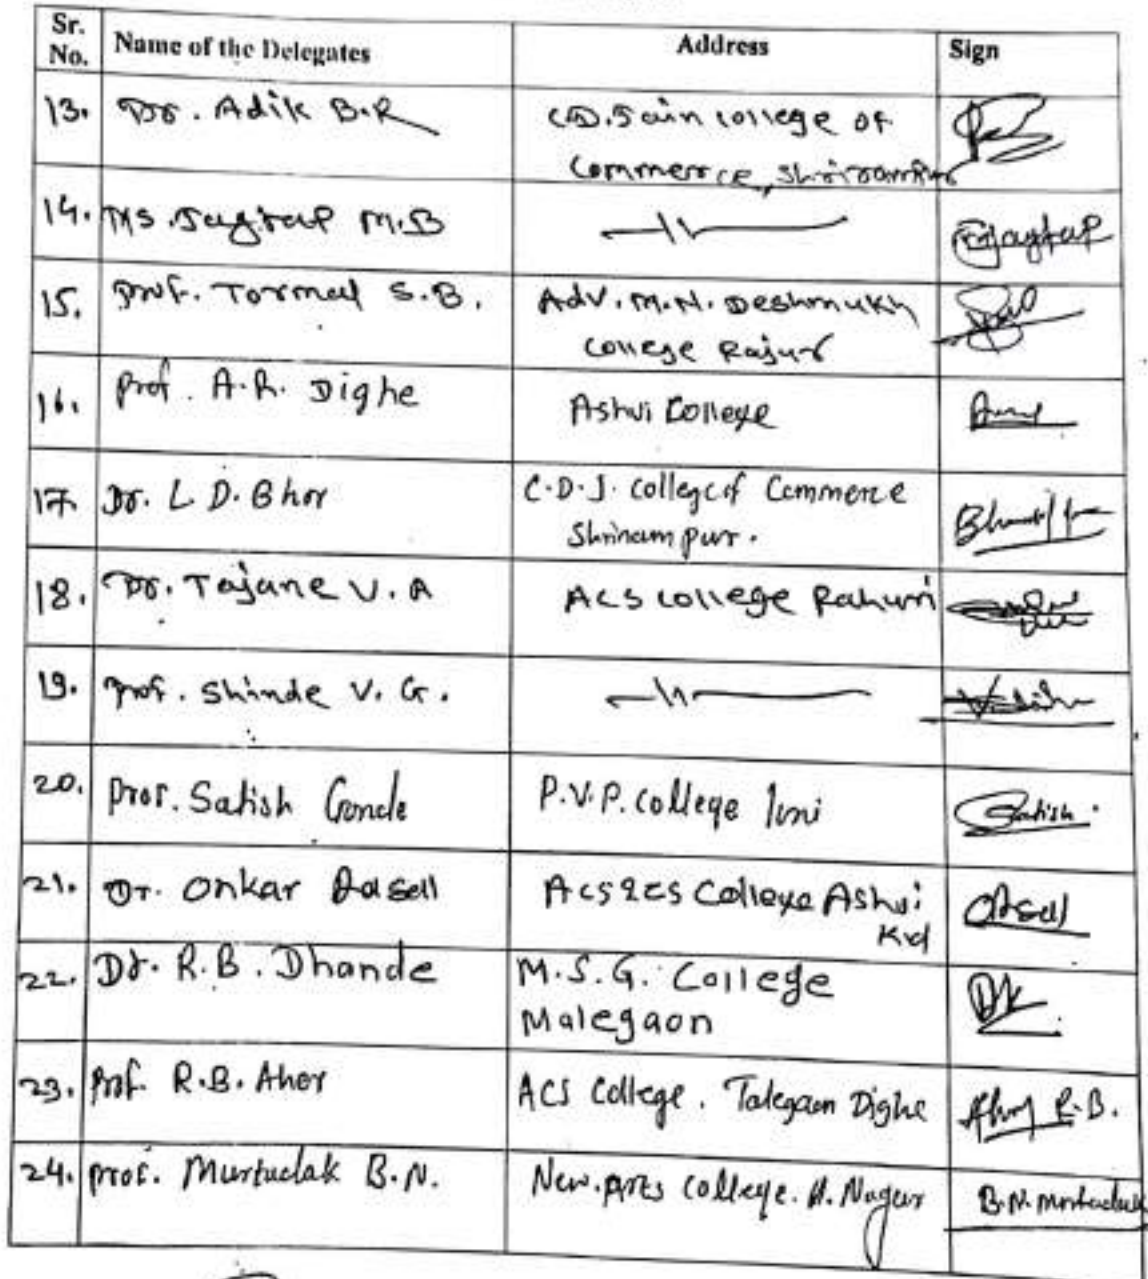 Sr. No. Name of the Delegates Address Sign
13. Dr. Adik B.R C.D. Jain College of
Commerce, Shrirampur
14. Ms. Jagtap M.B —〃— Jagtap
15. Prof. Tormal S.B. Adv. M.N. Deshmukh
College Rajur
16. Prof. A.R. Dighe Ashvi College
17. Dr. L.D. Bhor C.D.J. College of Commerce
Shrirampur.
18. Dr. Tajane V.A ACS College Rahuri
19. Prof. Shinde V.G. —〃—
20. Prof. Satish Gonde P.V.P. College Satish
21. Dr. Onkar Rasall ACS & CS College Ashvi
Kd
22. Dr. R.B. Dhande M.S.G. College
Malegaon
23. Prof. R.B. Aher ACS College. Talegaon Dighe Aher R.B.
24. Prof. Murtadak B.N. New. Arts College. A. Nagar B.N. Murtadak